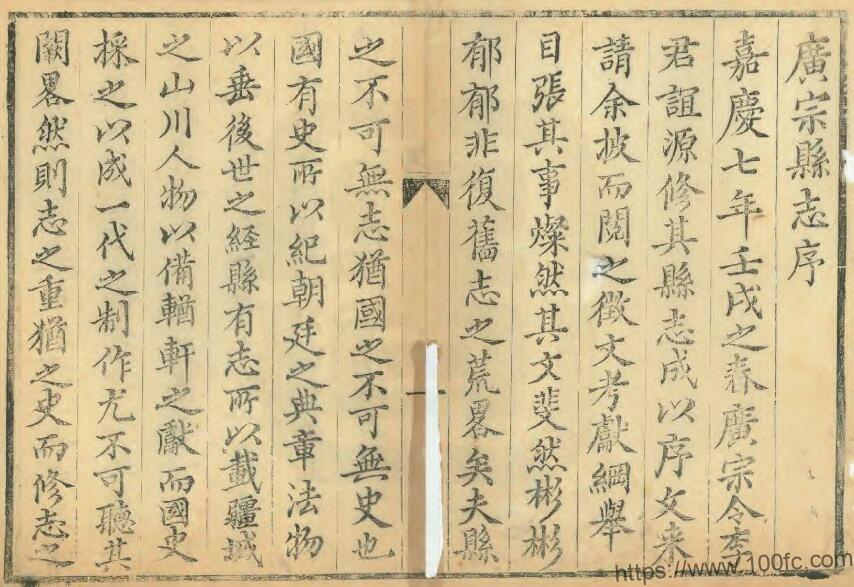 廣宗縣志序
嘉慶七年壬戌之春廣宗令李
君誼源修其縣志成以序文来
請余披而閱之徵文考獻綱舉
目張其事燦然其文斐然彬彬
郁郁非復舊志之荒畧矣夫縣
之不可無志猶國之不可無史也
國有史所以紀朝廷之典章法物
以垂後世之経縣有志所以載疆域
之山川人物以備輶軒之獻而國史
採之以成一代之制作尤不可聽其
闕畧然則志之重猶之史而修志之
一
https://www.100fc.com